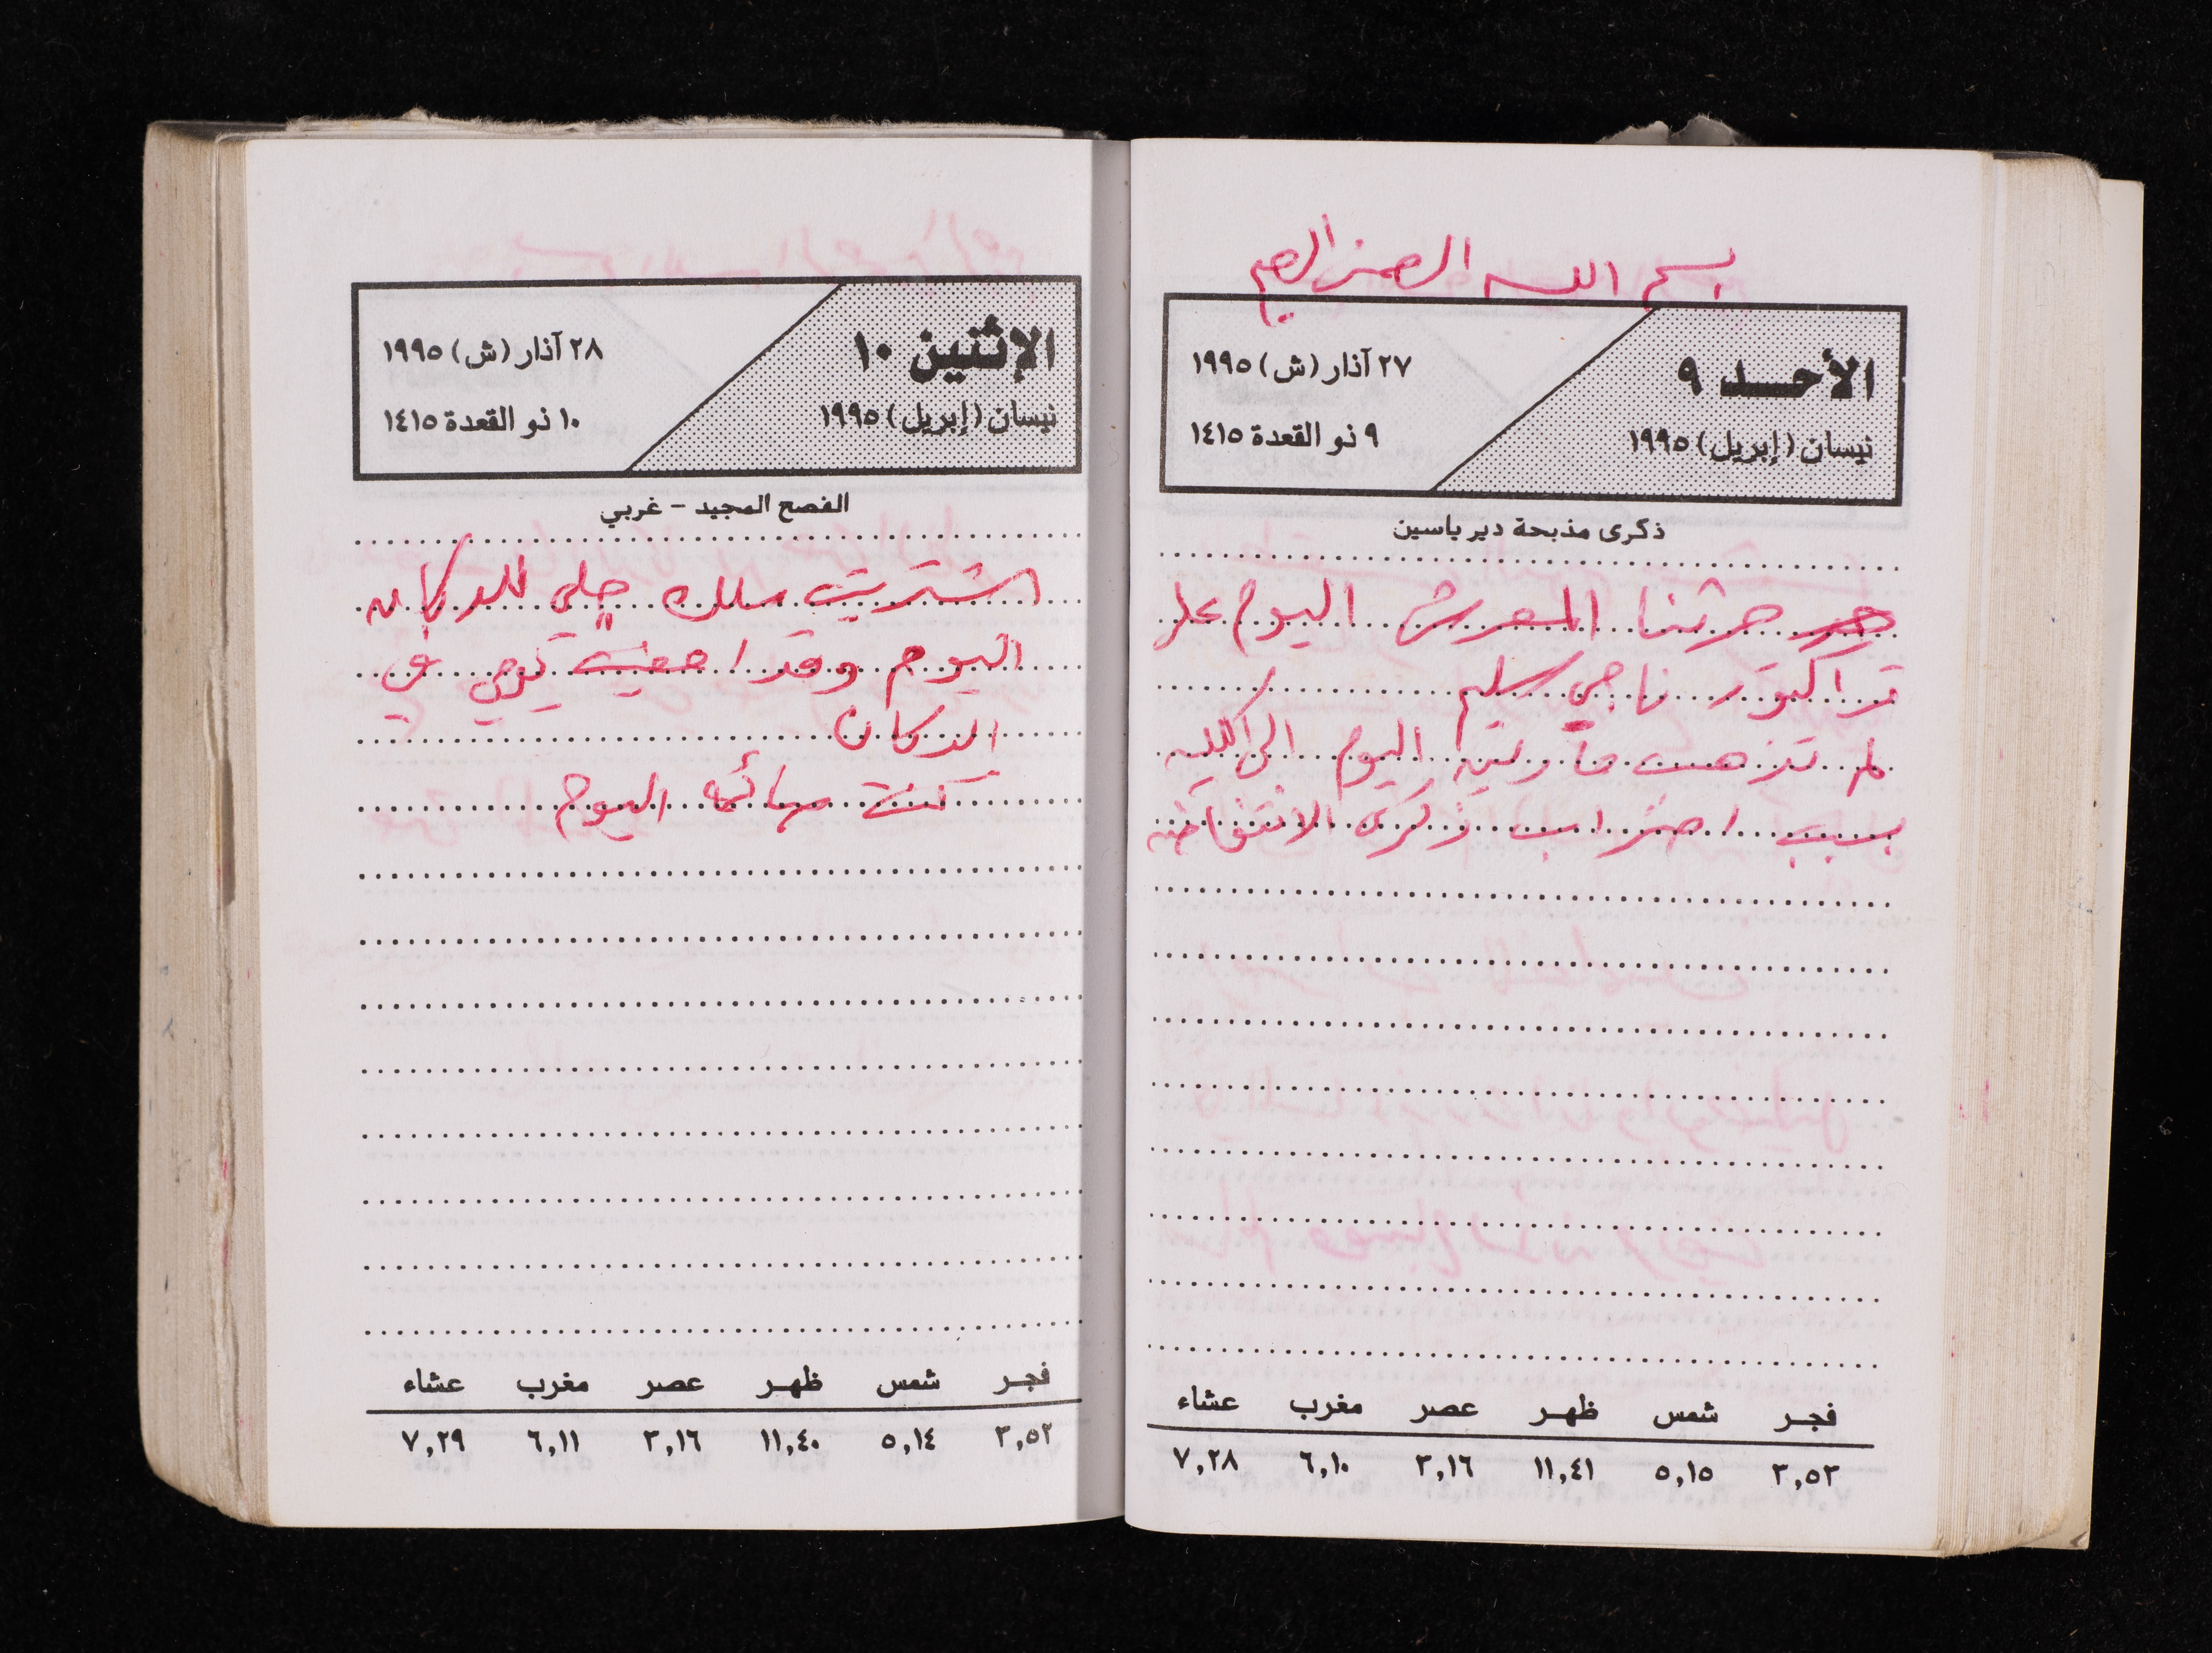 بسم الله الرحمن الرحيم
الأحد ٩
نيسان (إبريل) ١٩٩٥
٢٧ آذار (ش) ١٩٩٥
٩ ذو القعدة ١٤١٥
ذكرى مذبحة دير ياسين
حرثنا المعرش اليوم على
تراكتور ناجي سليم
لم تذهب اليوم الى الكلية
بسبب اضراب ذكرى الانتفاضة
فجر شمس ظهر عصر مغرب عشاء
٣,٥٣ ٥,١٥ ١١,٤١ ٣,١٦ ٦,١٠ ٧,٢٨
الإثنين ١٠
نيسان (إبريل) ١٩٩٥
٢٨ آذار (ش) ١٩٩٥
١٠ ذو القعدة ١٤١٥
الفصح المجيد - غربي
اشتريت سلك جلي للدكان
اليوم وقد نومي في
الدكان
كنت صائم اليوم
فجر شمس ظهر عصر مغرب عشاء
٣,٥٢ ٥,١٤ ١١,٤٠ ٣,١٦ ٦,١١ ٧,٢٩